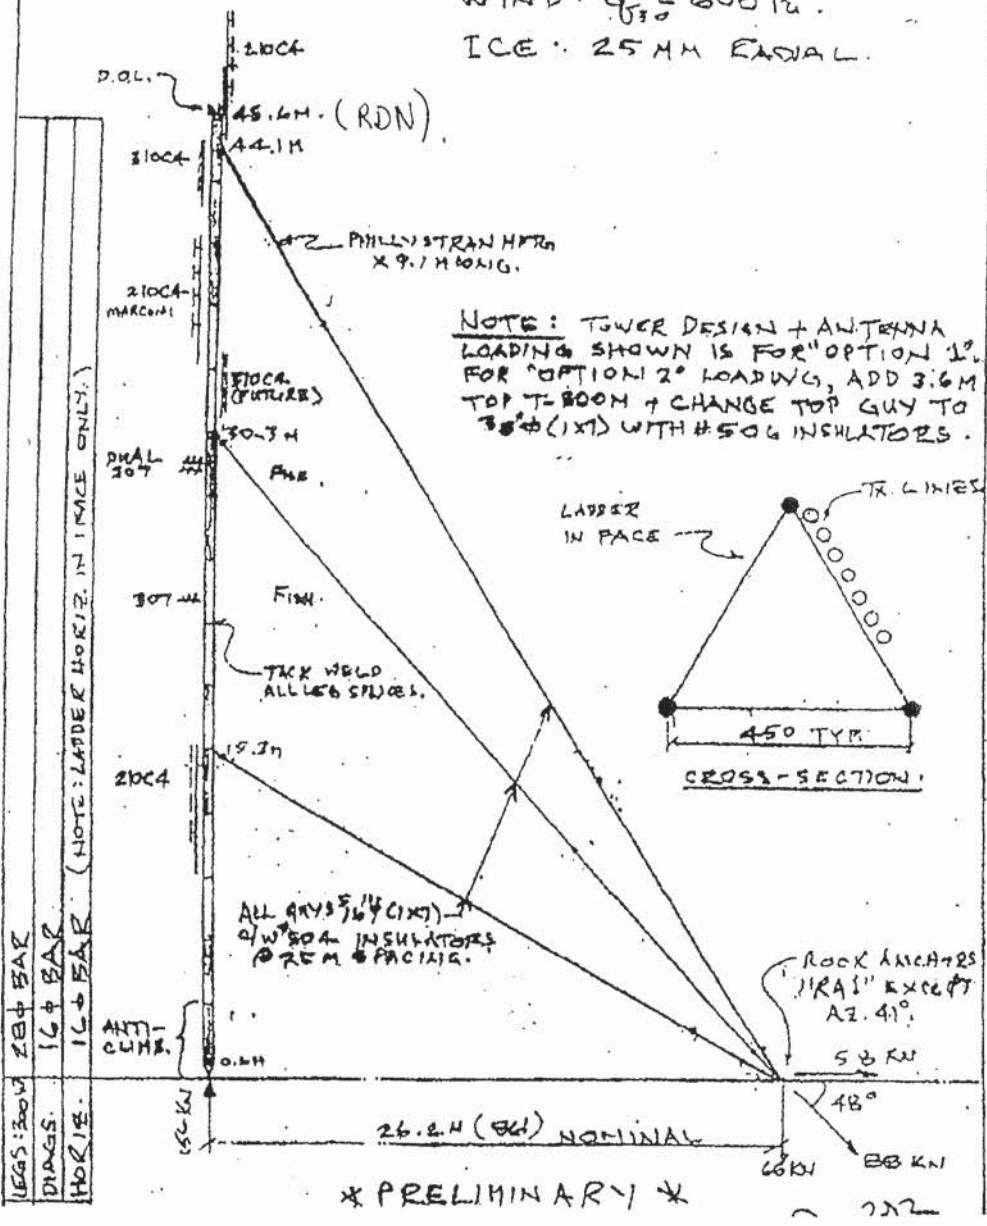 ICE: 25 MM RADIAL.
210C4
D.O.L.
45.6M. (RDN).
44.1M
310C4
PHILLYSTRAN HPTG
X 9.1 M LONG.
210C4
MARCONI
NOTE: TOWER DESIGN + ANTENNA
LOADING SHOWN IS FOR "OPTION 1".
FOR "OPTION 2" LOADING, ADD 3.6M
TOP T-BOOM + CHANGE TOP GUY TO
(1X7) WITH #506 INSULATORS.
310C4
(FUTURE)
30.3 M
DUAL
307
FNE.
TX. LINES
LADDER
IN FACE
307
FISH.
TACK WELD
ALL LEG SPLICES.
15.3M
450 TYP.
CROSS-SECTION.
210C4
ALL GUYS 5/16"φ (1X7)
C/W #504 INSULATORS
@ 25 M SPACING.
ROCK ANCHORS
"RA1" EXCEPT
AZ. 41°.
ANTI-
CLIMB.
0.6M
58 KN
48°
26.2M (86') NOMINAL
66KN
88 KN
* PRELIMINARY *
LEGS: 300W 28φ BAR
DIAGS. 16φ BAR
HORIZ. 16φ BAR (NOTE: LADDER HORIZ. IN 1 FACE ONLY.)